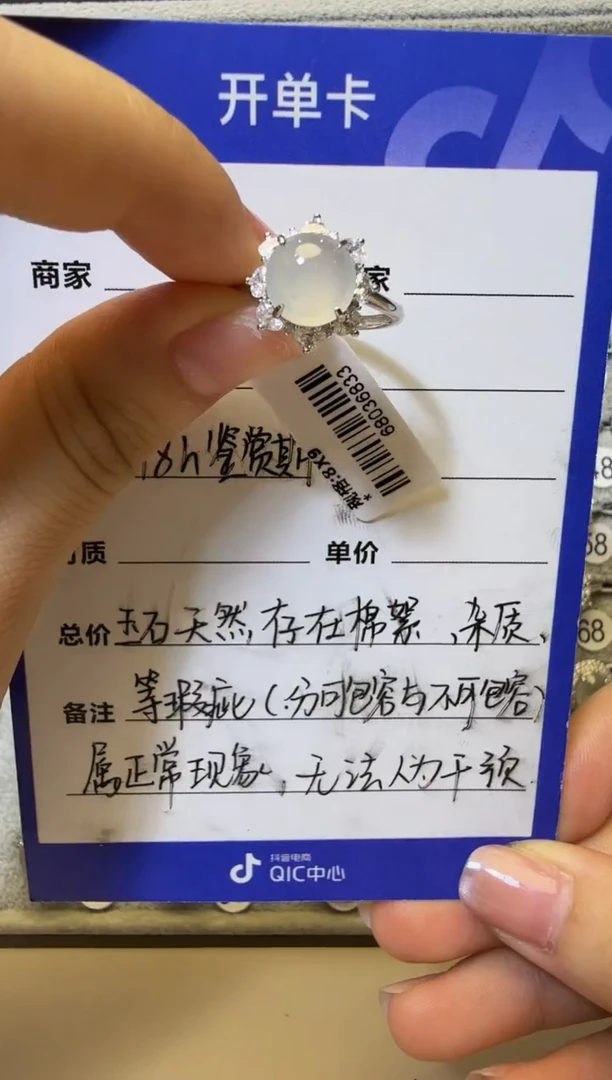 开单卡
商家
家
68036833
规格:8X9
18h鉴赏期
质 单价
总价 玉石天然,存在棉絮、杂质、
备注 等瑕疵(分可包容与不可包容)
属正常现象,无法人为干预.
抖音电商
QIC中心
58
68